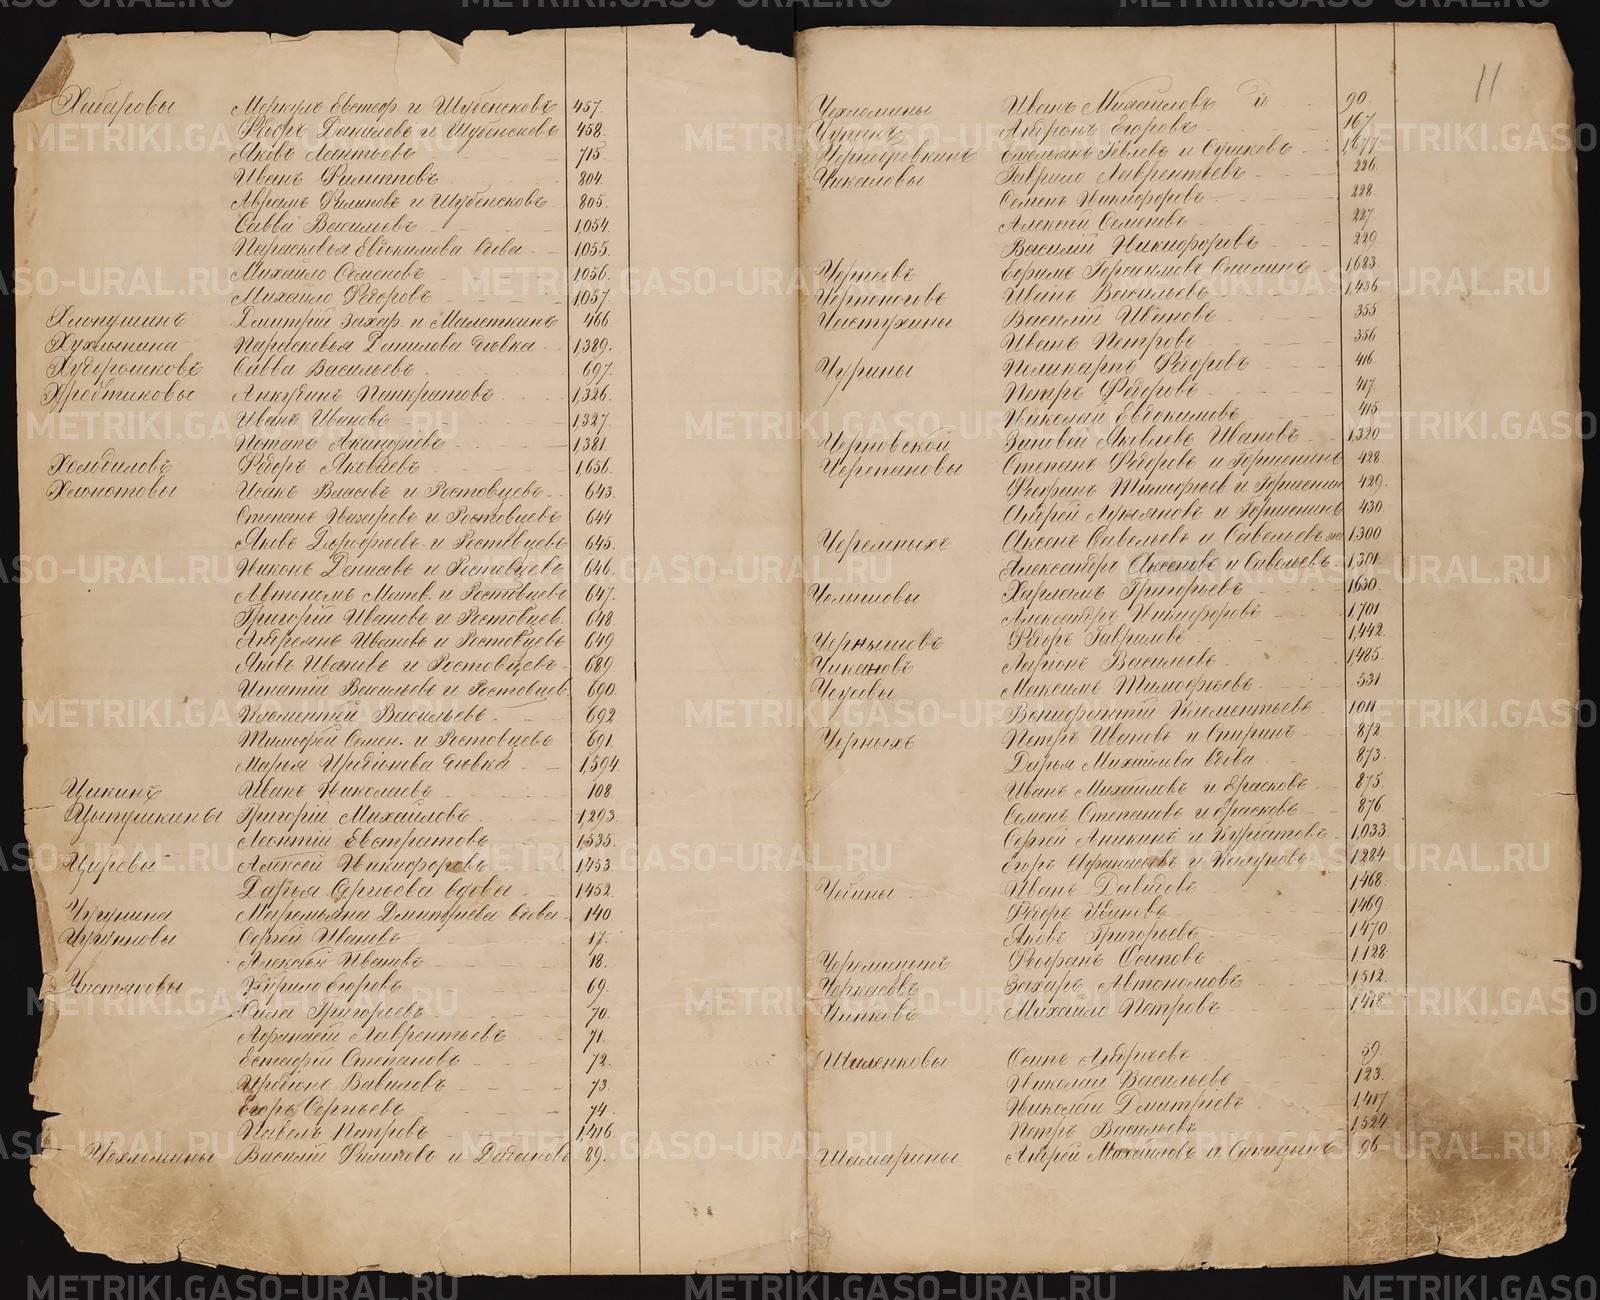 11
Хабаровы Меркулъ Евстаф. и Шубенсковъ 457.
Ѳедоръ Даниловъ и Шубенсковъ 458.
Яковъ Леонтьевъ 715.
Иванъ Филипповъ 804.
Аврамъ Филиповъ и Шубенсковъ 805.
Савва Васильевъ 1,054.
Парасковья Евдокимова вдова 1,055.
Михайло Семеновъ 1,056.
Михайло Ѳедоровъ 1,057.
Хлопушинъ Дмитрій Захар. и Малеткинъ 466
Парасковья Данилова дѣвка 1,389.
Худорошковъ Савва Васильевъ 697.
Анкудинъ Панкратовъ 1,326.
Иванъ Ивановъ 1,327.
Потапъ Акинфіевъ 1,381.
Холодиловъ Ѳедоръ Яковлевъ 1,656.
Хлопотовы Исакъ Власовъ и Ростовцевъ 643.
Степанъ Назаровъ и Ростовцевъ 644
Яковъ Дорофѣевъ и Ростовцевъ 645.
Никонъ Денисовъ и Ростовцевъ 646.
Автономъ Матв. и Ростовцевъ 647.
Григорій Ивановъ и Ростовцев. 648.
Андреянъ Ивановъ и Ростовцевъ 649
Яковъ Ивановъ и Ростовцевъ 689.
Игнатій Васильевъ и Ростовцев. 690.
Клементей Васильевъ 692
Тимофей Семен. и Ростовцевъ 691.
Марья Иродіонова дѣвка 1,594.
Цикинъ Иванъ Николаевъ 108.
Цыпушкины Григорій Михайловъ 1,293.
Леонтій Евстратовъ 1,535.
Царевы Алексей Никифоровъ 1,453.
Дарья Сергѣева вдовы 1,452.
Чугунина Маремьяна Дмитріева вдова 140
Чугуновы Сергей Ивановъ 17.
Алексѣй Ивановъ 18.
Чистяковы Кирило Егоровъ 69.
Сила Григорьевъ 70.
Афанасей Лаврентьевъ 71.
Евстафій Степановъ 72.
Иродіонъ Вавиловъ 73.
Егоръ Сергѣевъ 74.
Павелъ Петровъ 1,416.
Чохломины Василій Филиповъ и Датановъ 89.
Чохломины Иванъ Михайловъ и 90
Чупинъ Андронъ Егоровъ 167.
Емельянъ Іевлевъ и Сушковъ 1,677.
Чикаловы Гаврило Лаврентьевъ 226.
Семенъ Никифоровъ 228.
Алексѣй Семеновъ 227.
Василій Никифоровъ 229
Чернѣевъ Ефимъ Герасимовъ 1,683.
Черноноговъ Иванъ Васильевъ 1,436.
Частухины Василій Ивановъ 355
Иванъ Петровъ 356
Чурины Поликарпъ Ѳедоровъ 416
Петръ Ѳедоровъ 417.
Николай Евдокимовъ 415
Черновской Зиновей Яковлевъ Ивановъ 1,320
Черепановы Степанъ Ѳедоровъ и Горшенинъ 428
Тимофѣев и Горшенин 429.
Андрей Лукьяновъ и Горшенинъ 430.
Черемныхъ Аксенъ Савельевъ и Савельевъ же 1,300
Александръ Аксеновъ и Савельевъ 1,301.
Чолышовы Харламъ Григорьевъ 1,630.
Александръ Никифоровъ 1,701.
Чернышовъ Ѳедоръ Гавриловъ 1,442.
Чикановъ Ларіонъ Васильевъ 1,485.
Чоусовы Максимъ Тимофѣевъ 531.
Венифантій Клементьевъ 1011.
Черныхъ Петръ Ивановъ и Спиринъ 872.
Дарья Михайлова вдова 873.
Иванъ Михайловъ и Ерасковъ 875.
Семенъ Степановъ и Ерасковъ 876.
Сергей Аникинъ и Курбатовъ 1,033.
Егоръ Афанасьевъ и Кылуновъ 1,284.
Чеины Иванъ Давыдовъ 1,468.
Ѳедоръ Ивановъ 1,469.
Яковъ Григорьевъ 1,470.
Черемицынъ Ѳеофанъ Осиповъ 1,128.
Черкасовъ Захаръ Автономовъ 1,512.
Чипковъ Михайло Петровъ 1,418.
Шиленковы Осипъ Андреевъ 59.
Николай Васильевъ 123.
Николай Дмитріевъ 1,417.
Петръ Васильевъ 1,524.
Шамарины Андрей Михайловъ и Сипицынъ 96